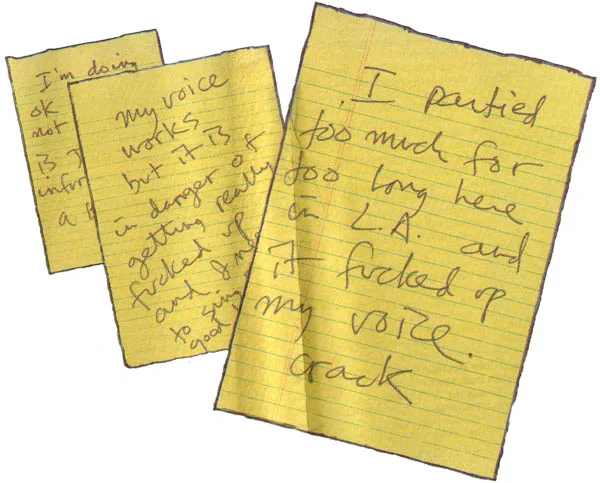 I'm doing
ok
not
is
a
my voice
works
but it is
in danger of
getting really
fucked up
and I
to sing
good
I partied
too much for
too long here
in L.A. and
it fucked up
my voice.
crack